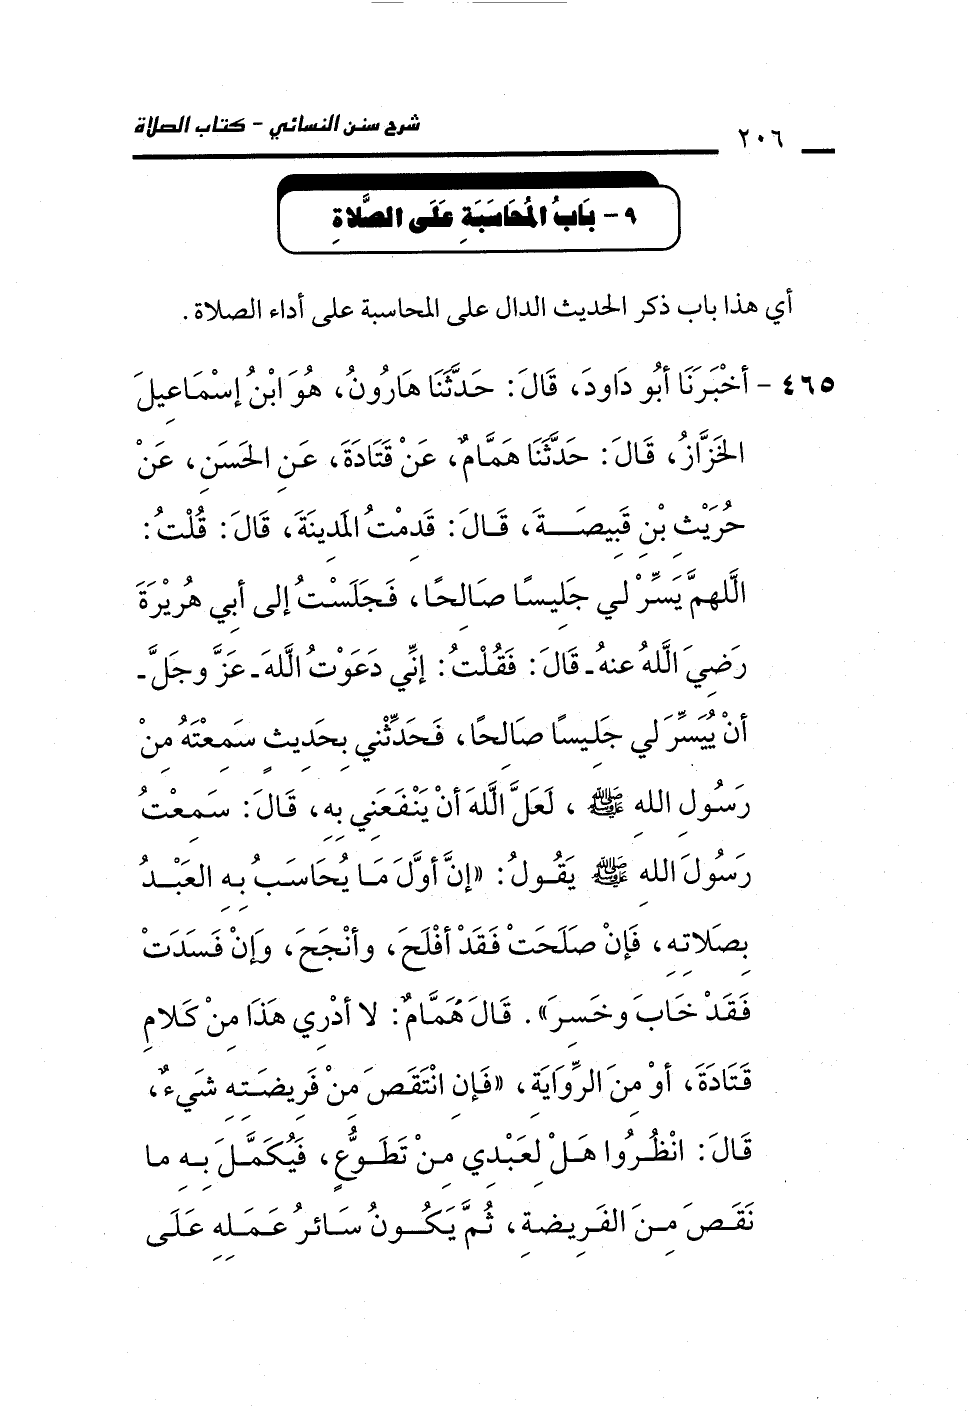 شرح سنن النسائي - كتاب الصلاة
٢٠٦
٩ - بَابُ المُحَاسَبَةِ عَلَى الصَّلاةِ
أي هذا باب ذكر الحديث الدال على المحاسبة على أداء الصلاة .
٤٦٥ - أخْبَرَنَا أبُو دَاودَ، قَالَ: حَدَّثَنَا هَارُونُ، هُوَ ابْنُ إسْمَاعِيلَ
الخَزَّازُ، قَالَ: حَدَّثَنَا هَمَّامٌ، عَنْ قَتَادَةَ، عَنِ الحَسَنِ، عَنْ
حُرَيْثِ بْنِ قَبِيصَةَ، قَالَ: قَدِمْتُ المَدِينَةَ، قَالَ: قُلْتُ:
الَّلهمَّ يَسِّرْ لي جَلِيسًا صَالِحًا، فَجَلَسْتُ إلى أبِي هُرَيْرَةَ
رَضِيَ اللَّهُ عنهُ ـ قَالَ: فَقُلْتُ: إنِّي دَعَوْتُ اللَّهَ ـ عَزَّ وجَلَّ ـ
أنْ يُيَسِّرَ لي جَلِيسًا صَالِحًا، فَحَدِّثْنِي بِحَدِيثٍ سَمِعْتَهُ مِنْ
رَسُولِ اللهِ ﷺ ، لَعَلَّ اللَّهَ أنْ يَنْفَعَنِي بِهِ، قَالَ: سَمِعْتُ
رَسُولَ اللهِ ﷺ يَقُولُ: «إنَّ أوَّلَ مَا يُحَاسَبُ بِهِ العَبْدُ
بِصَلاتِهِ، فَإنْ صَلَحَتْ فَقَدْ أفْلَحَ، وأنْجَحَ، وَإنْ فَسَدَتْ
فَقَدْ خَابَ وخَسِرَ». قَالَ هَمَّامٌ: لا أدْرِي هَذَا مِنْ كَلامِ
قَتَادَةَ، أوْ مِنَ الرِّوَايَةِ، «فَإنِ انْتَقَصَ مِنْ فَرِيضَتِهِ شَيءٌ،
قَالَ: انْظُرُوا هَلْ لِعَبْدِي مِنْ تَطَوُّعٍ، فَيُكَمَّلَ بِهِ ما
نَقَصَ مِنَ الفَرِيضةِ، ثُمَّ يَكُونُ سَائرُ عَمَلِهِ عَلَى